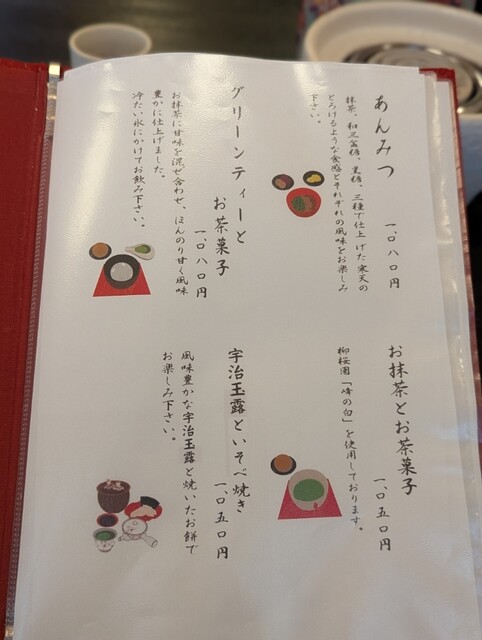 あんみつ
一、〇八〇円
抹茶、和三盆糖、黒糖、三種で仕上げた寒天の
とろけるような食感とそれぞれの風味をお楽しみ
下さい。
グリーンティーと
お茶菓子
一、〇八〇円
お抹茶に甘味を混ぜ合わせ、ほんのり甘く風味
豊かに仕上げました。
冷たい氷にかけてお飲み下さい。
お抹茶とお茶菓子
一、〇五〇円
柳桜園「峰の白」を使用しております。
宇治玉露といそべ焼き
一、〇五〇円
風味豊かな宇治玉露と焼いたお餅で
お楽しみ下さい。